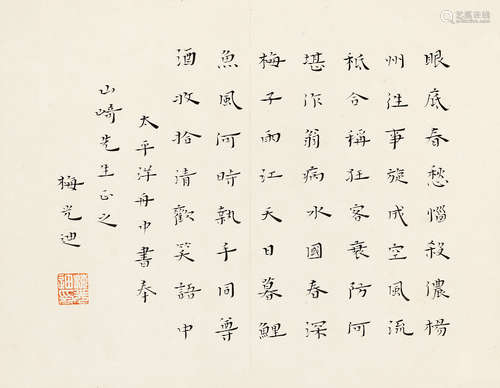 眼底春愁惱殺濃楊
州往事旋成空風流
秪合稱狂客衰防何
堪作翁病水國春深
梅子雨江天日暮鯉
魚風何時執手同尊
酒收拾清歡笑語中
太平洋舟中書奉
山崎先生正之
梅光迪